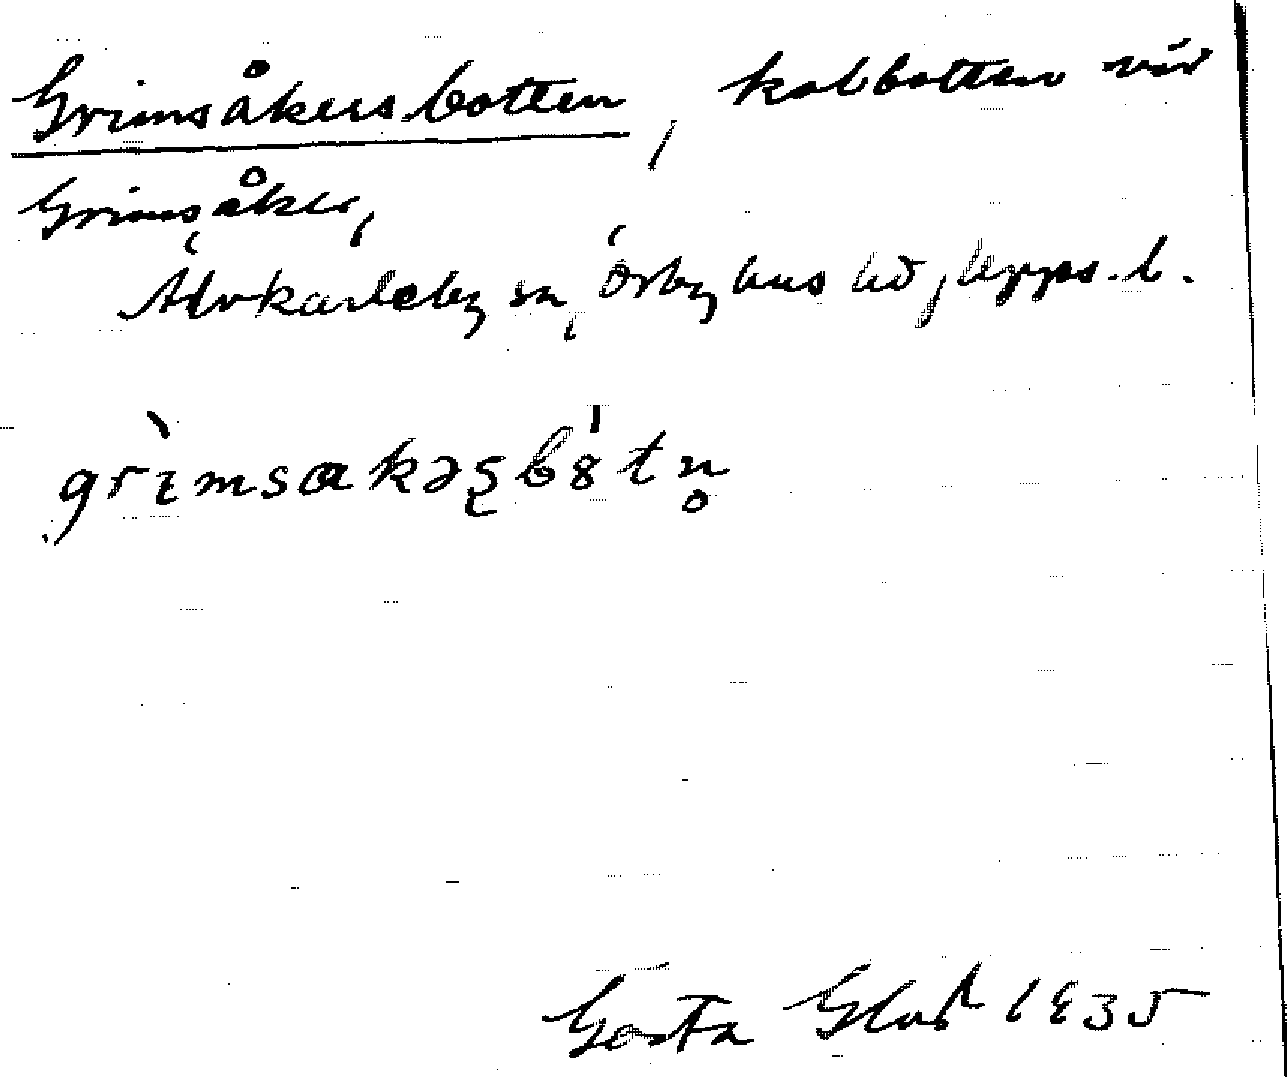 Grimsåkersbotten, kolbotten vid
Grimsåker,
Älvkarleby sn, Örbyhus hd, Upps. l.
grìmsakəʂbȣ́tn̥
Gösta 1935